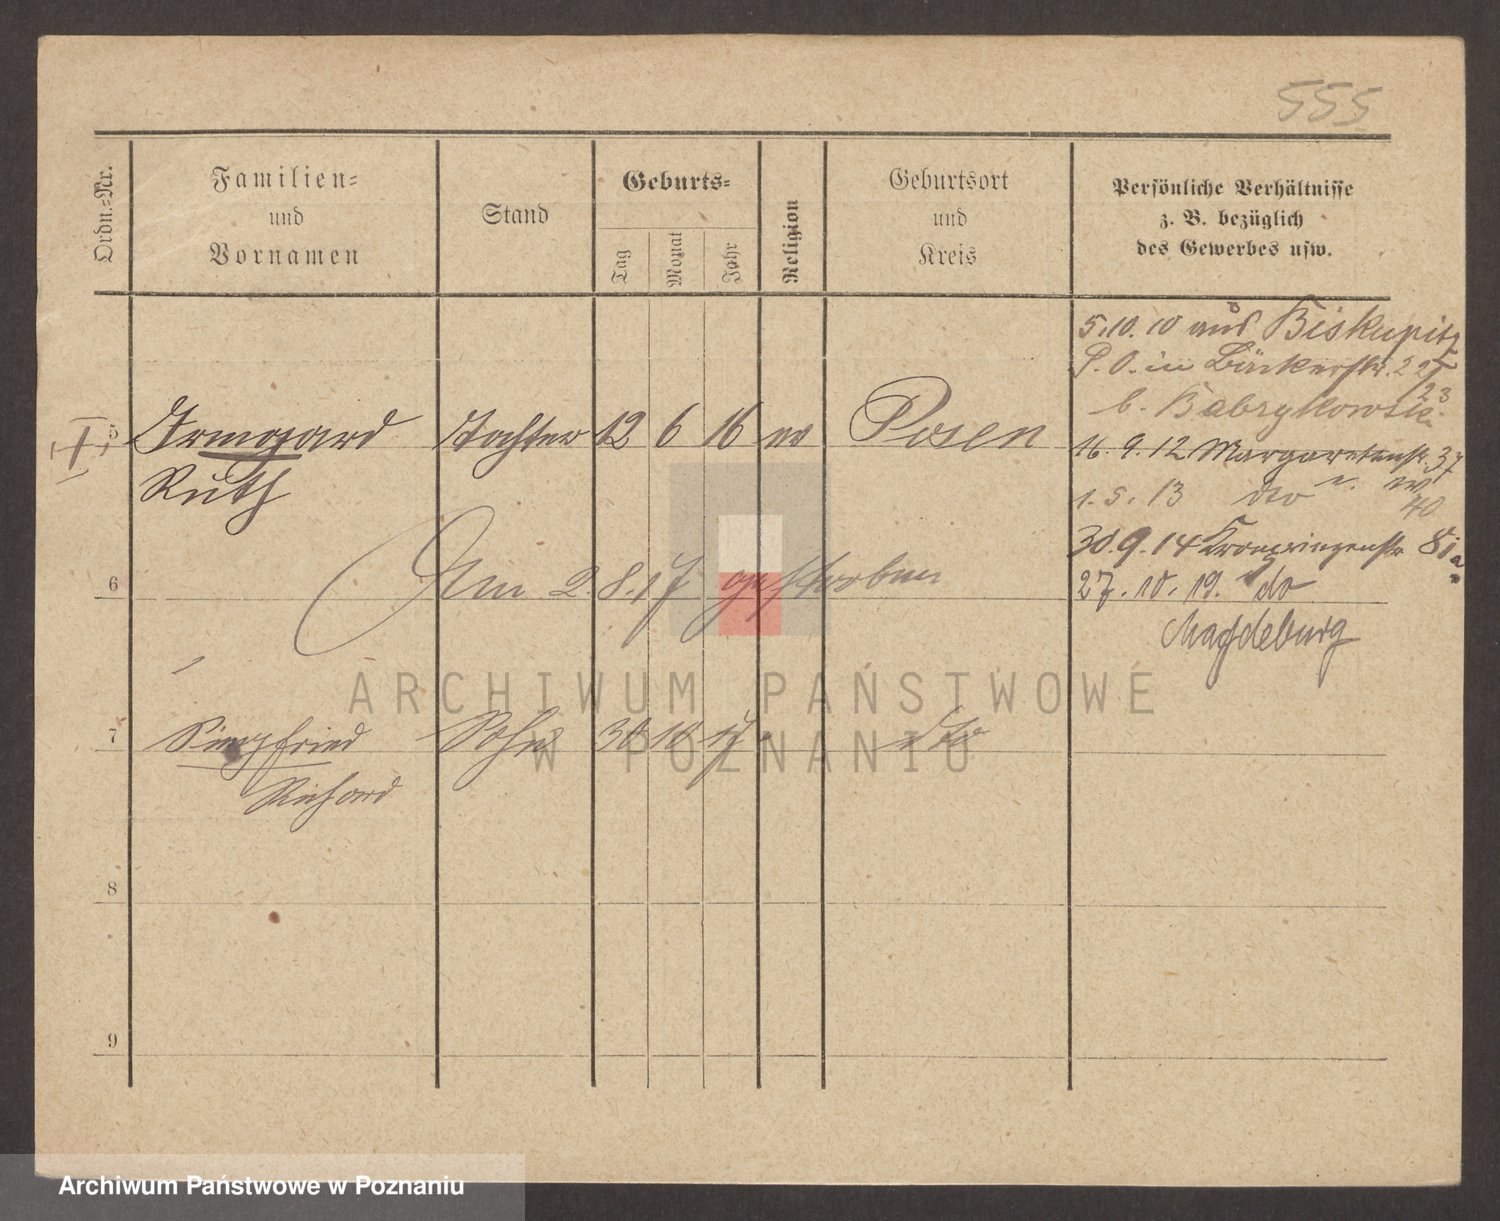 555
Ordn.-Nr.
Familien-
und
Vornamen
Stand
Geburts-
Tag
Monat
Jahr
Religion
Geburtsort
und
Kreis
Persönliche Verhältnisse
z. B. bezüglich
des Gewerbes usw.
5.10.10 aus Biskupitz
P. O. in Bäckerstr. 22/
23
b. Babrykowski
5 Irmgard Tochter 12 6 16 ev Posen
Ruth
16.9.12 Margaretenstr. 37
1.5.13 dto 40
30.9.14 Kronprinzenstr 81a
6 Am 2.8.17 gestorben
27.10.19. do
Magdeburg
7 Siegfried Sohn 30 10 17 dto
Richard
8
9
ARCHIWUM PAŃSTWOWE
W POZNANIU
Archiwum Państwowe w Poznaniu